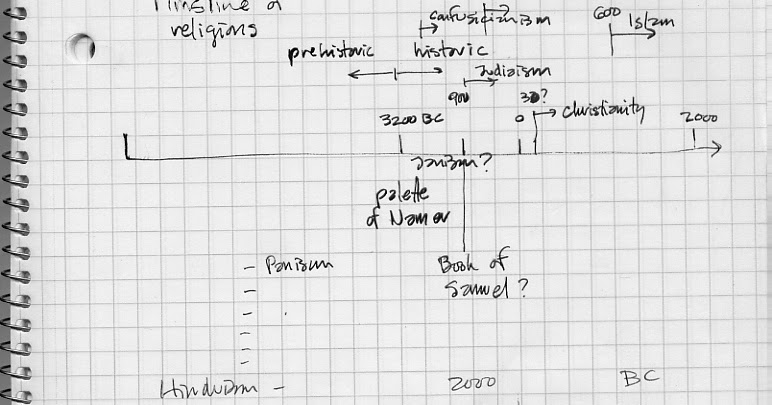 Timeline of
religions
confusicianism
600
Islam
prehistoric
historic
Judiaism
900
30?
3200 BC
0
christianity
2000
Janism?
palette
of Namer
- Panism
Book of
Samuel?
Hinduism -
2000
BC